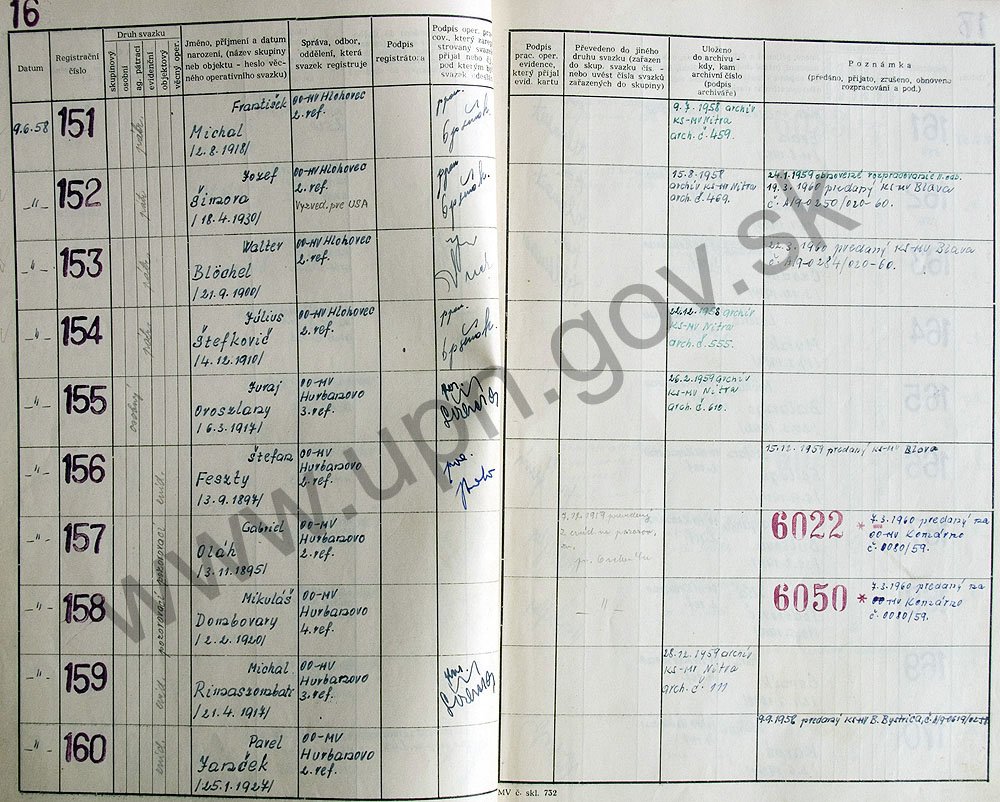 16
Datum
Registrační číslo
Druh svazku
skupinový
osobní
ag. pátrací
evidenční
objektový
věcný oper.
Jméno, příjmení a datum
narození, (název skupiny
neb objektu - heslo věc-
ného operativního svazku)
Správa, odbor,
oddělení, která
svazek registruje
Podpis
registrátora
Podpis oper. prac
cov., který zareg
strovaný svaze
přijal nebo čí
pod kterým by
Podpis
prac. oper.
evidence,
který přijal
evid. kartu
Převedeno do jiného
druhu svazku (zařazen
do skup. svazku čís. —
nebo uvést čísla svazků
zařazených do skupiny)
Uloženo
do archivu -
kdy, kam
archivní číslo
(podpis
archiváře)
Poznámka
(předáno, přijato, zrušeno, obnoveno
rozpracování a pod.)
9.6.58 151
František
Michal
/2.8.1918/
OO-MV Hlohovec
2. ref.
9.7.1958 archiv
KS-MV Nitra
arch. č. 459.
—"— 152
Jozef
Šimora
/18.4.1930/
OO-MV Hlohovec
2. ref.
Vyzved. pre USA
15.8.1958
archiv KS-MV Nitra
arch. č. 469.
24.1.1959 obnovené rozpracovanie
predaný KS-MV Blava
č. A/9-0250/020-60.
—"— 153
Walter
Blöchel
/21.9.1900/
OO-MV Hlohovec
2. ref.
22.3.1960 predaný KS-MV Blava
č. A/9-0284/020-60.
—"— 154
Július
Štefkovič
/4.12.1910/
OO-MV Hlohovec
2. ref.
22.12.1958 archiv
KS-MV Nitra
arch. č. 555.
—"— 155
osobný
Juraj
Oroszlany
/6.3.1917/
OO-MV
Hurbanovo
3. ref.
26.2.1959 archiv
KS-MV Nitra
arch. č. 610.
—"— 156
evid.
Štefan
Feszty
/3.9.1897/
OO-MV
Hurbanovo
2. ref.
15.12.1959 predaný KS-MV Blava
—"— 157
pozorovací
Gabriel
Oláh
/3.11.1895/
OO-MV
Hurbanovo
2. ref.
6022 * 7.3.1960 predaný na
OO-MV Komárno
č. 0080/59.
—"— 158
pozorovací
Mikuláš
Dombovary
/2.2.1920/
OO-MV
Hurbanovo
4. ref.
—"—
6050 * 7.3.1960 predaný na
OO-MV Komárno
č. 0080/59.
—"— 159
evid.
Michal
Rimaszombati
/21.4.1917/
OO-MV
Hurbanovo
3. ref.
28.12.1959 archiv
KS-MV Nitra
arch. č. 111
—"— 160
evid.
Pavel
Janček
/25.1.1927/
OO-MV
Hurbanovo
2. ref.
9.9.1958 predaný KS-MV B. Bystrica,
MV č. skl. 752
www.upn.gov.sk